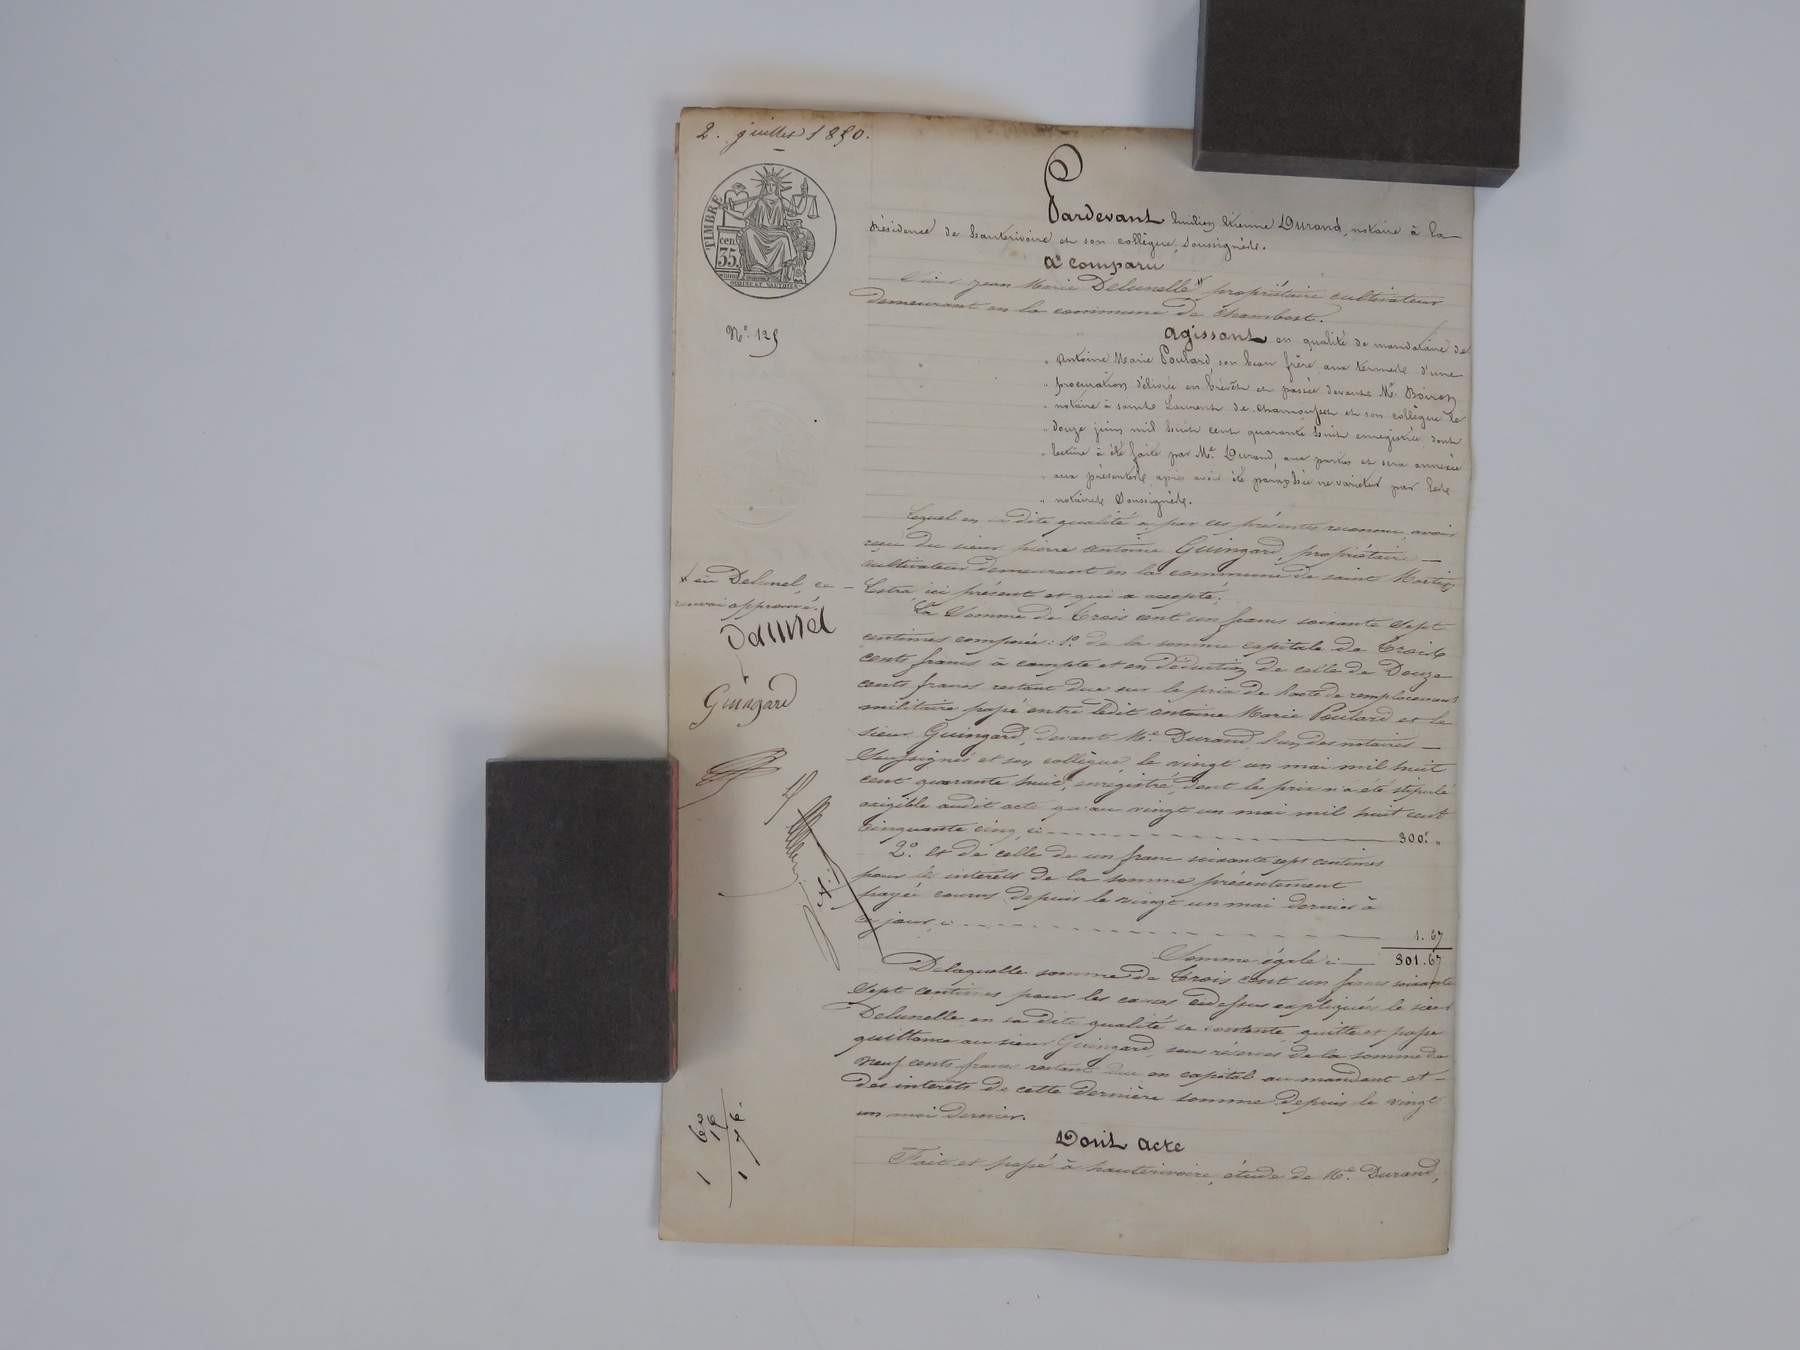 2. juillet 1850.
TIMBRE
cen.
35.
N.º 125
Pardevant Emilien Etienne Durand, notaire à la
résidence de hauterivoire et son collègue, soussignés.
a comparu
Sieur jean Marie Delunelle x propriétaire cultivateur
demeurant en la commune de Chambost.
agissant en qualité de mandataire de
" Antoine Marie Poulard, son beau frère, aux termes d'une
" procuration délivrée en brevet et passée devant Me. Boiron
" notaire à saint Laurent de chamousset et son collègue le
" douze juin mil huit cent quarante huit enregistrée dont
" lecture à été faite par Me. Durand, aux parties et sera annexée
" aux présentes, après avoir été paraphée ne varietur par les
" notaires soussignés.
Lequel en sa dite qualité a par ces présentes reconnu avoir
reçu du sieur pierre antoine Guingard, propriétaire
cultivateur demeurant en la commune de saint Martin
Lestra, ici présent et qui a accepté;
x ou Delunel, ce
renvoi approuvé.
Delunel
Guingard
La somme de trois cent un francs soixante sept
centimes composée: 1º. de la somme capitale de trois
cents francs à compte et en déduction de celle de Douze
cents francs restant due sur le prix de l'acte de remplacement
militaire passé entre ledit antoine Marie Poulard et le
sieur Guingard, devant Me. Durand, l'un des notaires
soussignés et son collègue le vingt un mai mil huit
cent quarante huit, enrégistré, dont le prix n'a été stipulé
exigible audit acte qu'au vingt un mai mil huit cent
cinquante cinq, ci 300f. "
2º. Et de celle de un franc soixante sept centimes
pour les interets de la somme présentement
payée courus depuis le vingt un mai dernier à
ce jour, ci 1. 67
Somme égale ci 301. 67
Delaquelle somme de trois cent un francs soixante
sept centimes pour les causes cidessus expliquées le sieur
Delunelle en sa dite qualité se contente, quitte et passe
quittance au sieur Guingard, sous réserves de la somme de
neuf cents francs restant due en capital au mandant et
des interets de cette dernière somme depuis le vingt
un mai dernier.
Dont acte
Fait et passé à hauterivoire, étude de Me. Durand,